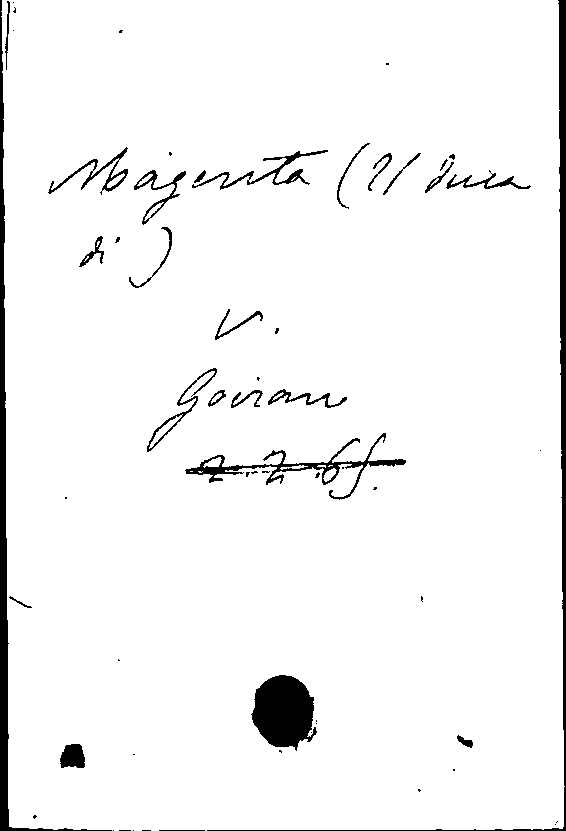 Magenta (Il duca
di)
V.
Goiran
2.2.65.